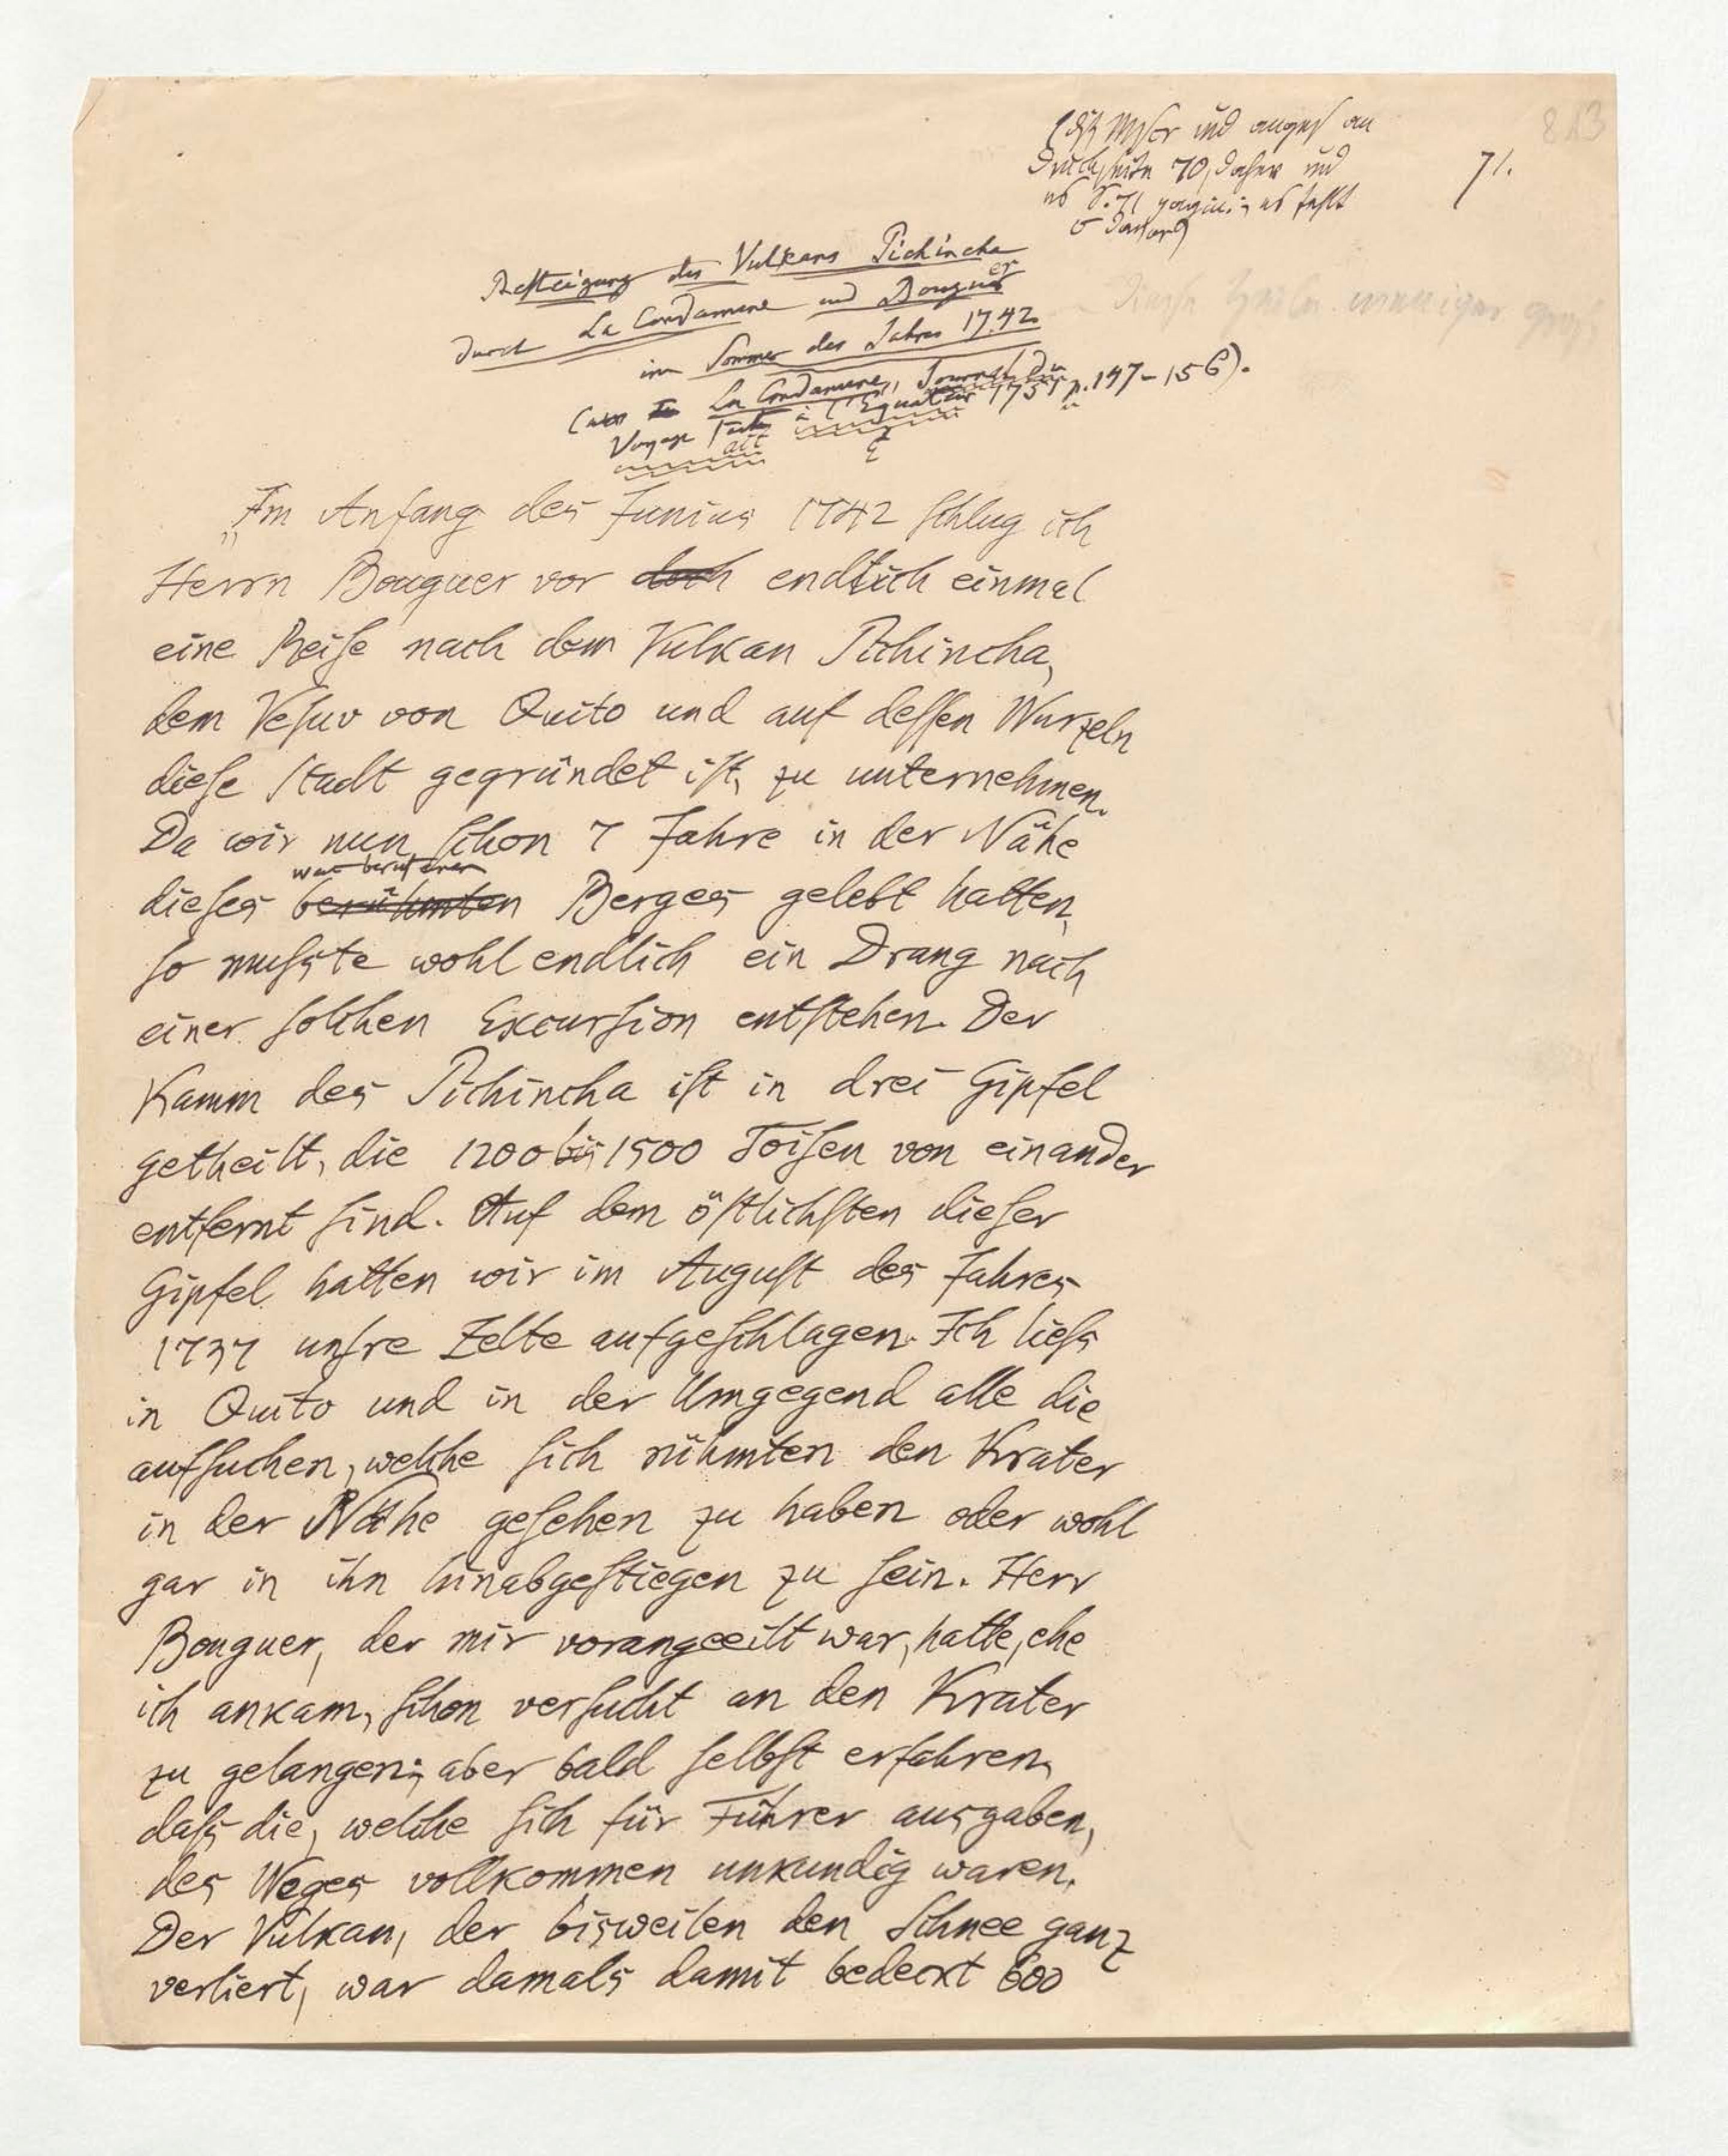 813
71.
Druckseite 70, daher und
Besteigung des Vulkans Pichincha
durch La Condamine und Bouguer
im Sommer des Jahres 1742
(aus La Condamine, Journal du
Voyage fait à l'Equateur 1751 p. 147–156).
„Im Anfang des Junius 1742 schlug ich
Herrn Bouguer vor doch endlich einmal
eine Reise nach dem Vulkan Pichincha,
dem Vesuv von Quito und auf dessen Wurzeln
diese Stadt gegründet ist, zu unternehmen.
Da wir nun schon 7 Jahre in der Nähe
dieses berühmten Berges gelebt hatten,
so musste wohl endlich ein Drang nach
einer solchen Excursion entstehen. Der
Kamm des Pichincha ist in drei Gipfel
getheilt, die 1200 bis 1500 Toisen von einander
entfernt sind. Auf dem östlichsten dieser
Gipfel hatten wir im August des Jahres
1737 unsre Zelte aufgeschlagen. Ich liess
in Quito und in der Umgegend alle die
aufsuchen, welche sich rühmten den Krater
in der Nähe gesehen zu haben oder wohl
gar in ihn hinabgestiegen zu sein. Herr
Bouguer, der mir vorangeeilt war, hatte, ehe
ich ankam, schon versucht an den Krater
zu gelangen; aber bald selbst erfahren,
dass die, welche sich für Führer ausgaben,
des Weges vollkommen unkundig waren.
Der Vulkan, der bisweilen den Schnee ganz
verliert, war damals damit bedeckt 600